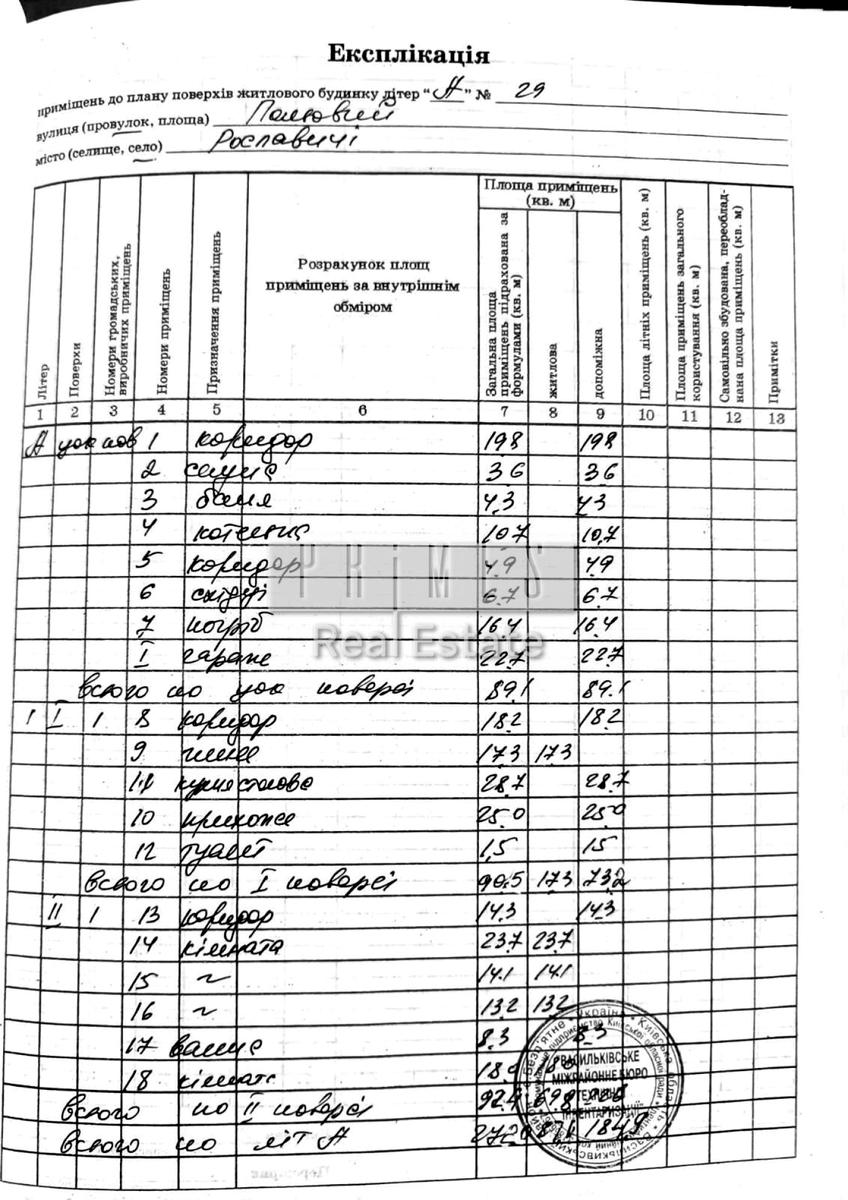 Експлікація
приміщень до плану поверхів житлового будинку літер “А” № 29
вулиця (провулок, площа) Польовий
місто (селище, село) Рославичі
Літер
Поверхи
Номери громадських, виробничих приміщень
Номери приміщень
Призначення приміщень
Розрахунок площ приміщень за внутрішнім обміром
Площа приміщень (кв. м)
Загальна площа приміщень підрахована за формулами (кв. м)
житлова
допоміжна
Площа літніх приміщень (кв. м)
Площа приміщень загального користування (кв. м)
Самовільно збудована, переобладнана площа приміщень (кв. м)
Примітки
1 2 3 4 5 6 7 8 9 10 11 12 13
А цок пов 1 коридор 19.8 19.8
2 сауна 3.6 3.6
3 баня 4.3 4.3
4 котельня 10.7 10.7
5 коридор 4.9 4.9
6 східці 6.7 6.7
7 погріб 16.4 16.4
I гараж 22.7 22.7
всього по цок поверсі 89.1 89.1
1 I 1 8 коридор 18.2 18.2
9 17.3 17.3
11 кухня столова 28.7 28.7
10 прихожа 25.0 25.0
12 туалет 1.5 1.5
всього по I поверсі 90.5 17.3 73.2
II 1 13 коридор 14.3 14.3
14 кімната 23.7 23.7
15 ~ 14.1 14.1
16 ~ 13.2 13.2
17 ванна 8.3 8.3
18 кімната
всього по II поверсі 92.4
всього по літ А
PRIMES
Real Estate
ВАСИЛЬКІВСЬКЕ
МІЖРАЙОННЕ БЮРО
ТЕХНІЧНОЇ
ІНВЕНТАРИЗАЦІЇ